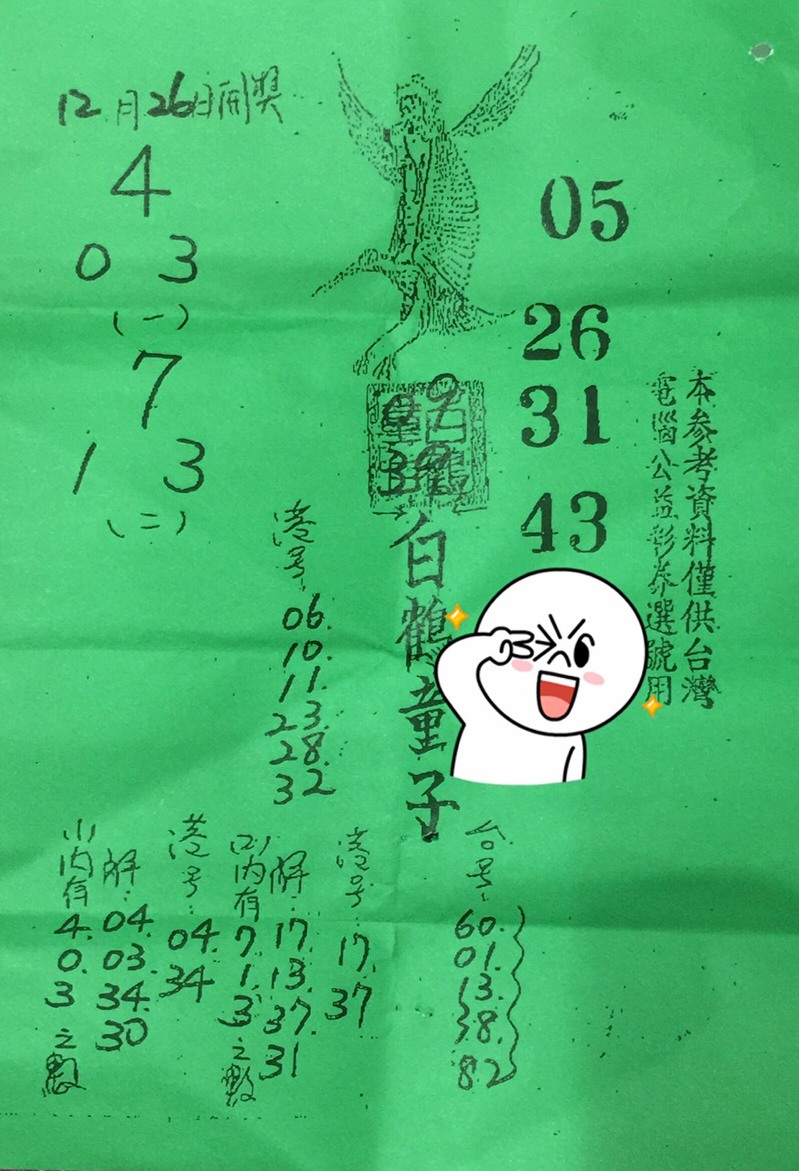 12月26日開獎
4
0 3
(一)
7
1 3
(二)
05
26
31
43
本参考資料僅供台灣
電腦公益彩券選號用
白鶴童子
港号:
06.
10.
11.
23.
28.
32
台号:
60.
01.
13.
38.
82
港号:
17.
37
解:
17.
13.
37.
31
(二)內有
7.
1.
3之數
港号:
04.
34
解:
04.
03.
34.
30
(一)內有
4.
0.
3之數